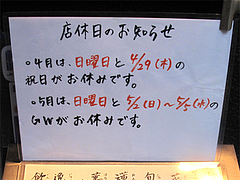 店休日のお知らせ
○4月は、日曜日と4/29(木)の
祝日がお休みです。
○5月は、日曜日と5/2(日)〜5/5(水)の
GWがお休みです。